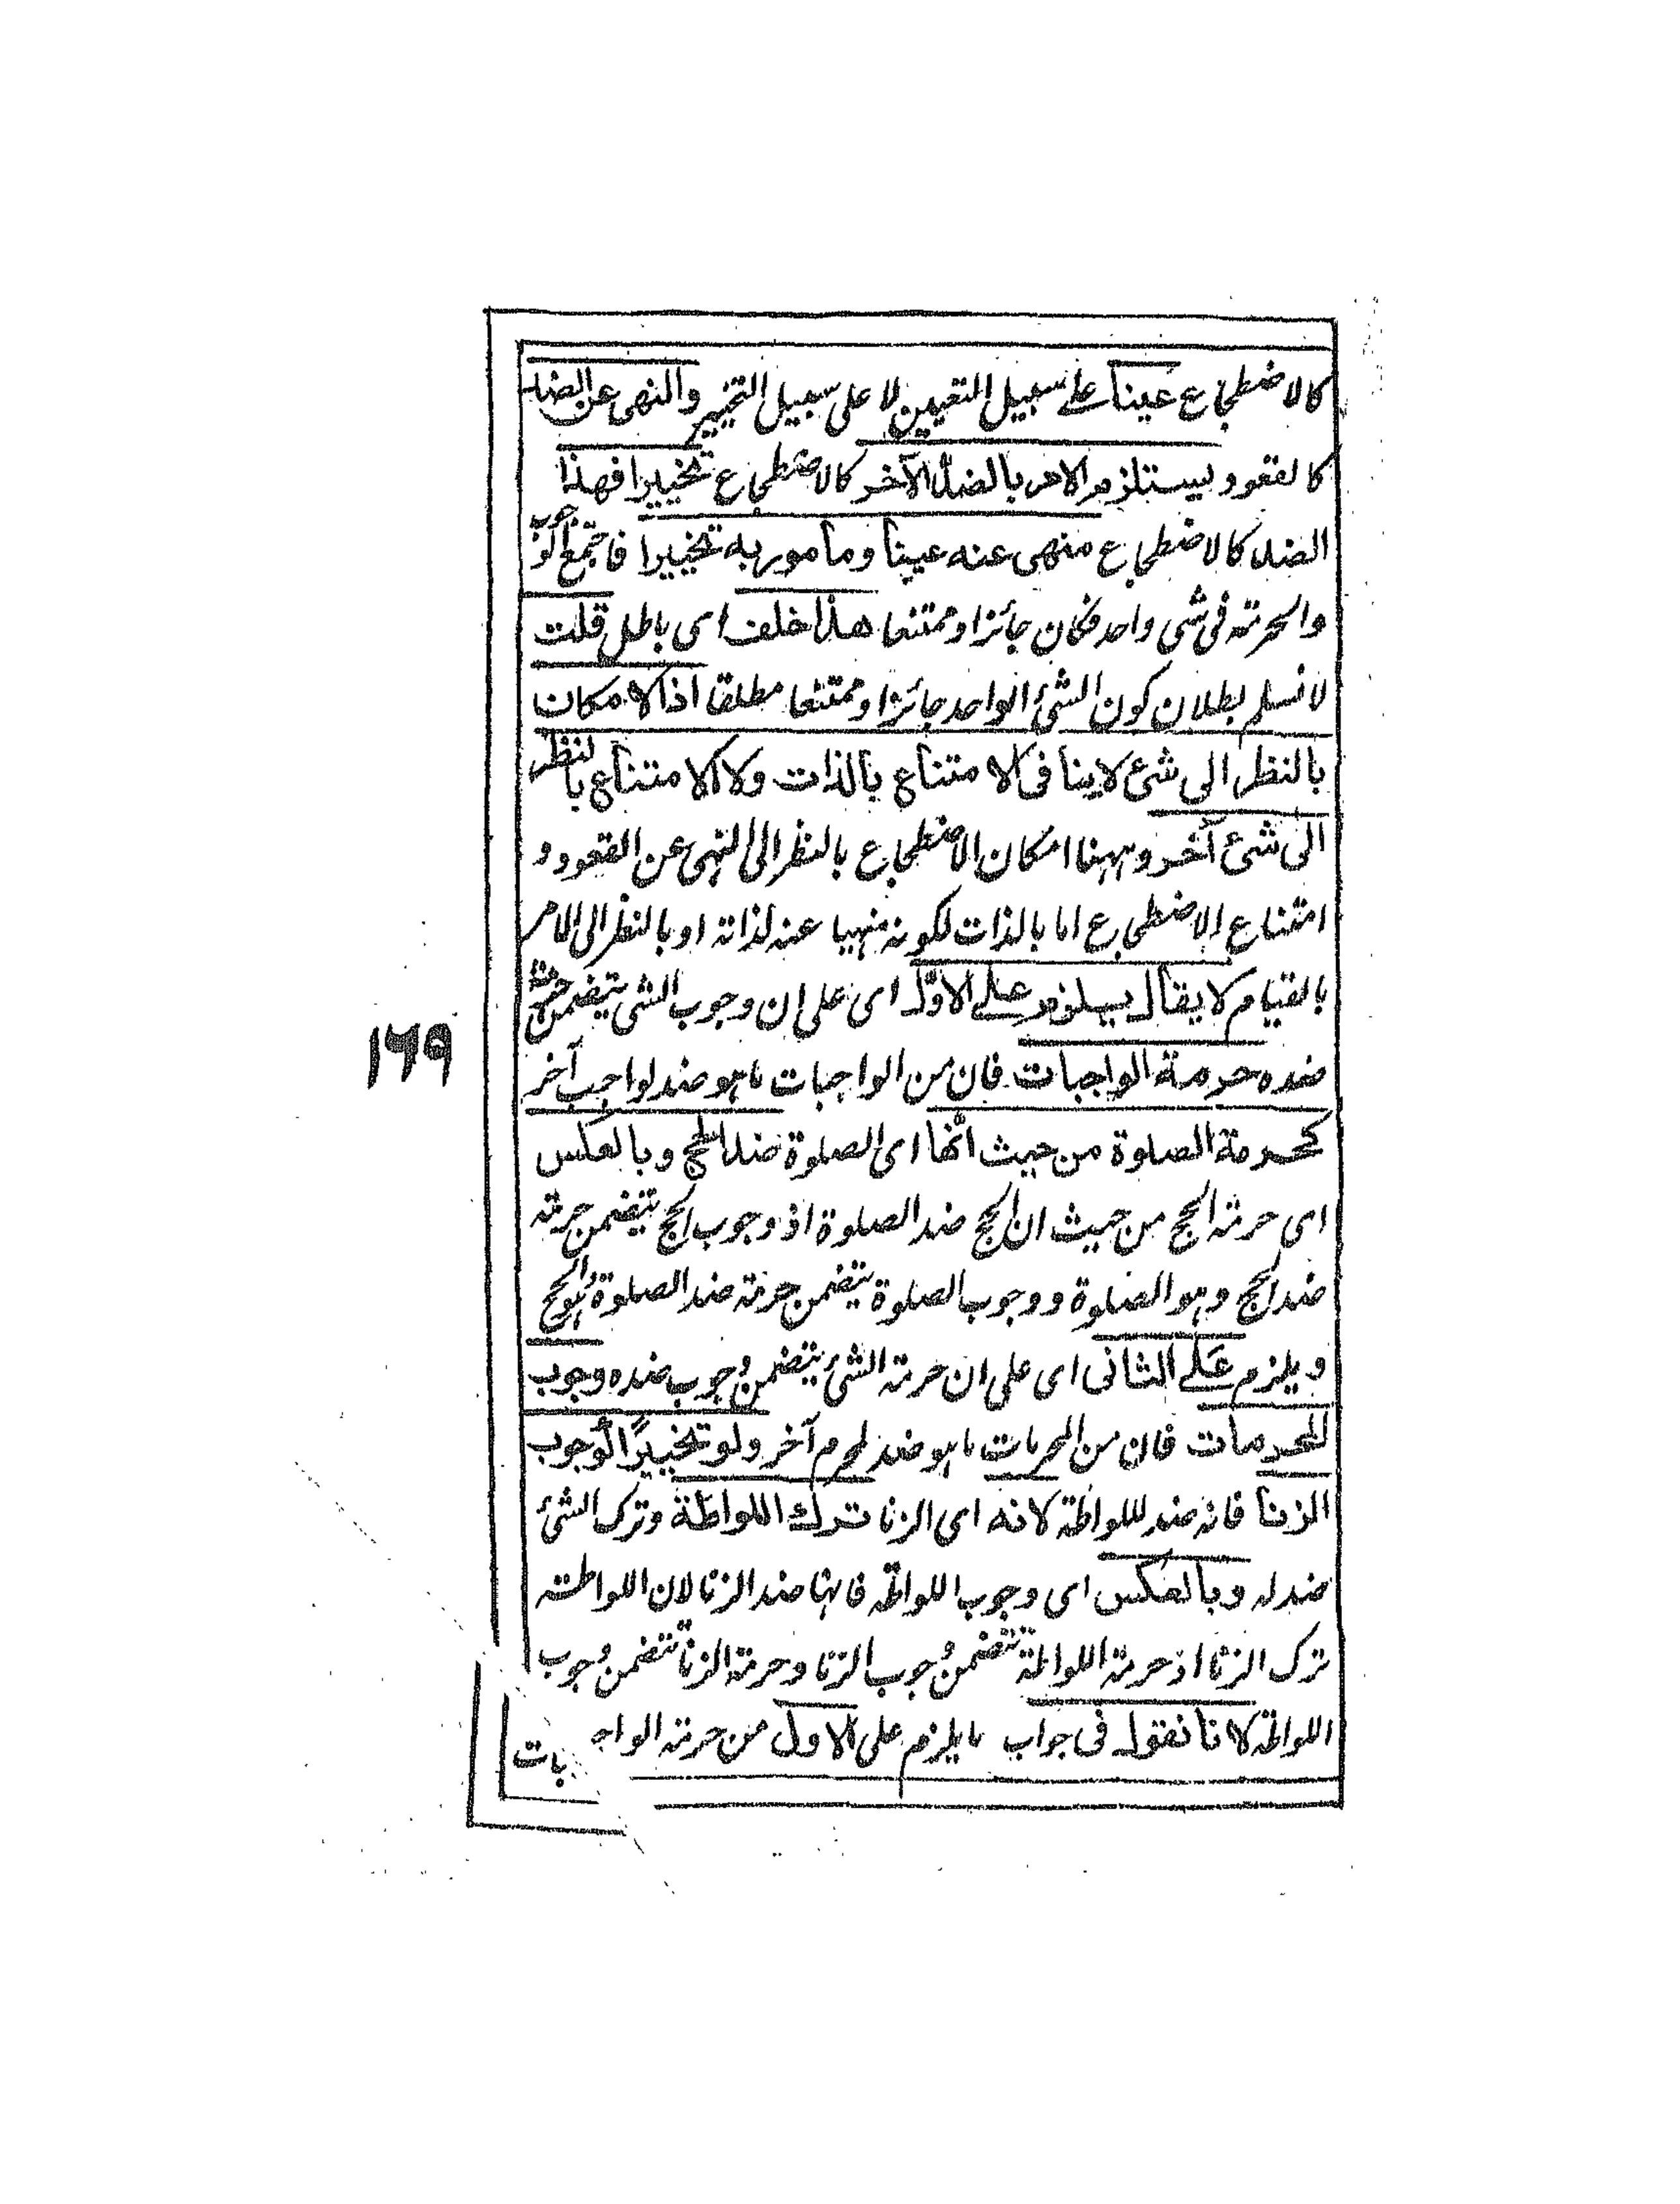 كالاضطجاع عيناً على سبيل التعيين لا على سبيل التخيير والنهى عن الضد
كالقعود يستلزم الامر بالضد الآخر كالاضطجاع تخييرا فهذا
الضد كالاضطجاع منهى عنه عيناً ومأمور به تخييرا فاجتمع الوجوب
والحرمة فى شى واحد فكان جائزا وممتنعا هذا خلف اى باطل قلت
لا نسلم بطلان كون الشئ الواحد جائزا وممتنعا مطلقا اذ الامكان
بالنظر الى شئ لا ينافى الامتناع بالذات ولا الامتناع بالنظر
الى شئ آخر وههنا امكان الاضطجاع بالنظر الى النهى عن القعود و
امتناع الاضطجاع اما بالذات لكونه منهيا عنه لذاته او بالنظر الى الامر
بالقيام لا يقال يلزم على الاول اى على ان وجوب الشى يتضمن حرمة
ضده حرمة الواجبات فان من الواجبات ما هو ضد لواجب آخر
كحرمة الصلوة من حيث انها اى الصلوة ضد الحج وبالعكس
اى حرمة الحج من حيث ان الحج ضد الصلوة اذ وجوب الحج يتضمن حرمة
ضد الحج وهو الصلوة ووجوب الصلوة يتضمن حرمة ضد الصلوة وهو الحج
ويلزم على الثانى اى على ان حرمة الشئ يتضمن وجوب ضده وجوب
المحرمات فان من المحرمات ما هو ضد لمحرم آخر ولو تخييرًا كوجوب
الزنا فانه ضد للواطة لانه اى الزنا ترك اللواطة وترك الشئ
ضد له وبالعكس اى وجوب اللواطة فانها ضد الزنا لان اللواطة
ترك الزنا اذ حرمة اللواطة تتضمن وجوب الزنا وحرمة الزنا تتضمن وجوب
اللواطة لانا نقول فى جواب ما يلزم على الاول من حرمة الواجبات
١٦٩